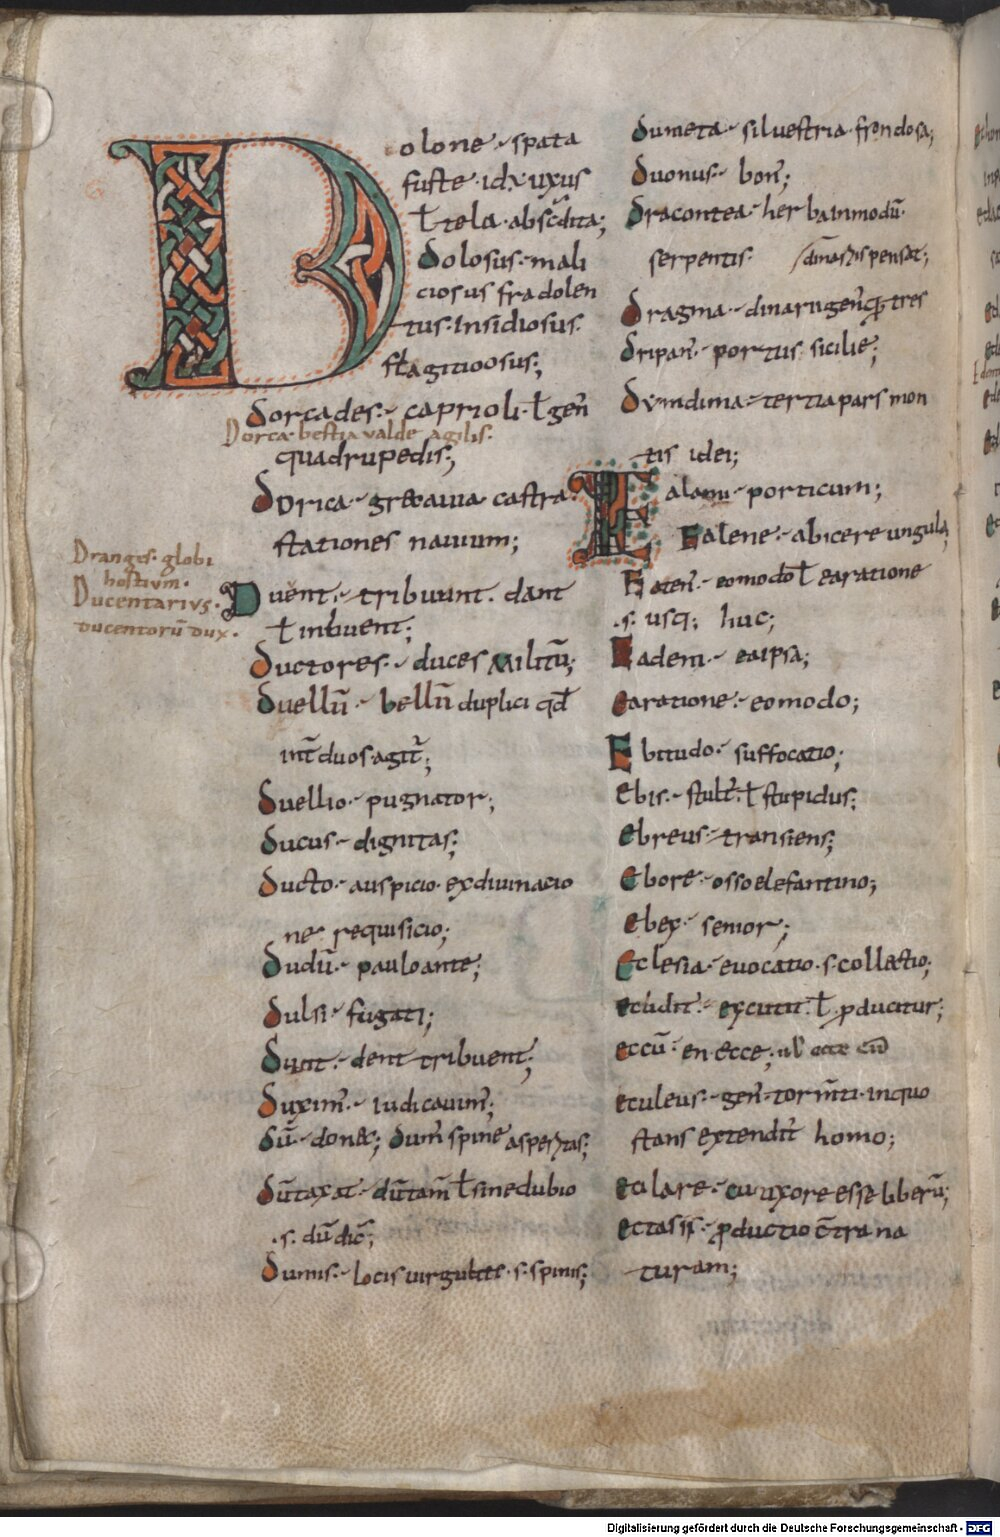 Dolone · spata
fuste · id · vuxus
ł tela · abscdita;
dolosus · mali
ciosus fradolen
tus · Insidiosus ·
flagitioosus;
dorcades · caprioli · ł gen̄
Dorca · bestia valde agilis ·
quadrupedis;
dorica · castra
stationes nauium;
Dranges · globi
hostium ·
Ducentarivs ·
ducentorū dux ·
Duent · tribuunt · dant
ł inbuent;
ductores · duces militū;
duellū · bellū duplici qđ
int̄ duos agit̄;
duellio · pugnator;
ducus · dignitas;
ducto · auspicio · exdiuinacio
ne requisicio;
dudū · pauloante;
dulsi · fugati;
dunt · dent tribuent;
duxim̄ · iudicauim̄;
dū · donec; dum̄ spine asperitas;
dūtaxat · dūtam̄ ł sinedubio
· s · dū dic̄;
dumis · locis uirgultee · s · spinis;
dumeta · siluestria · frondosa;
duonus · bon̄;
dracontea · herbainmodū ·
serpentis · pensat;
dragma · tres
dripan̄ · portus sicilie;
dyndima · tertiapars mon
tis idei;
Ealanu · porticum;
Ealene · abicere ungula
Eaten̄ · eomodo ł earatione
· s · usq; huc;
Eadem · eaipsa;
earatione · eomodo;
Ebitudo · suffocatio;
ebis · stult̄ · ł stupidus;
ebreus · transiens;
ebore · osso elefantino;
ebex · senior;
Eclesia · euocatio · s · collectio;
ecludit · excutit · ł ꝓducitur;
eccū · en ecce; ul ecce eū
eculeus · gen̄ · torm̄ti · inquo
stans extendit̄ homo;
ecilare · cu uxore esse liberū;
ectasis · ꝓductio c̄tra na
turam;
Digitalisierung gefördert durch die Deutsche Forschungsgemeinschaft - DFG